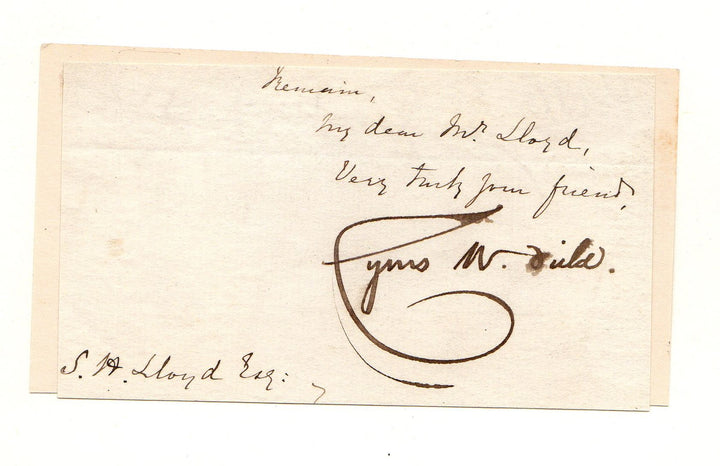 Remain,
My dear Mr. Lloyd,
Very truly your friend,
Cyrus W. Field.
S. H. Lloyd Esq: